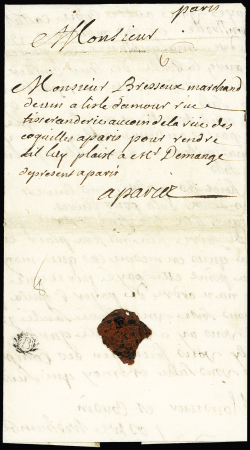 paris
A Monsieur
Monsieur Bresseux marchand
devin a lisle damour rue
tisseranderie au coin de la rue des
coquilles a paris pour rendre
sil luy plaist a Mr Demange
de present a paris
a paris